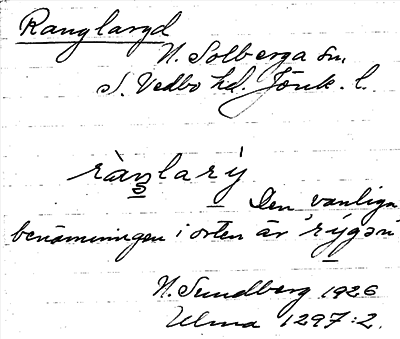 Ranglaryd
N. Solberga sn.
S. Vedbo hd. Jönk. l.
ràŋlarý
Den vanliga
benämningen i orten är 'rýgən'
N. Sundberg 1926
Ulma 1297:2.